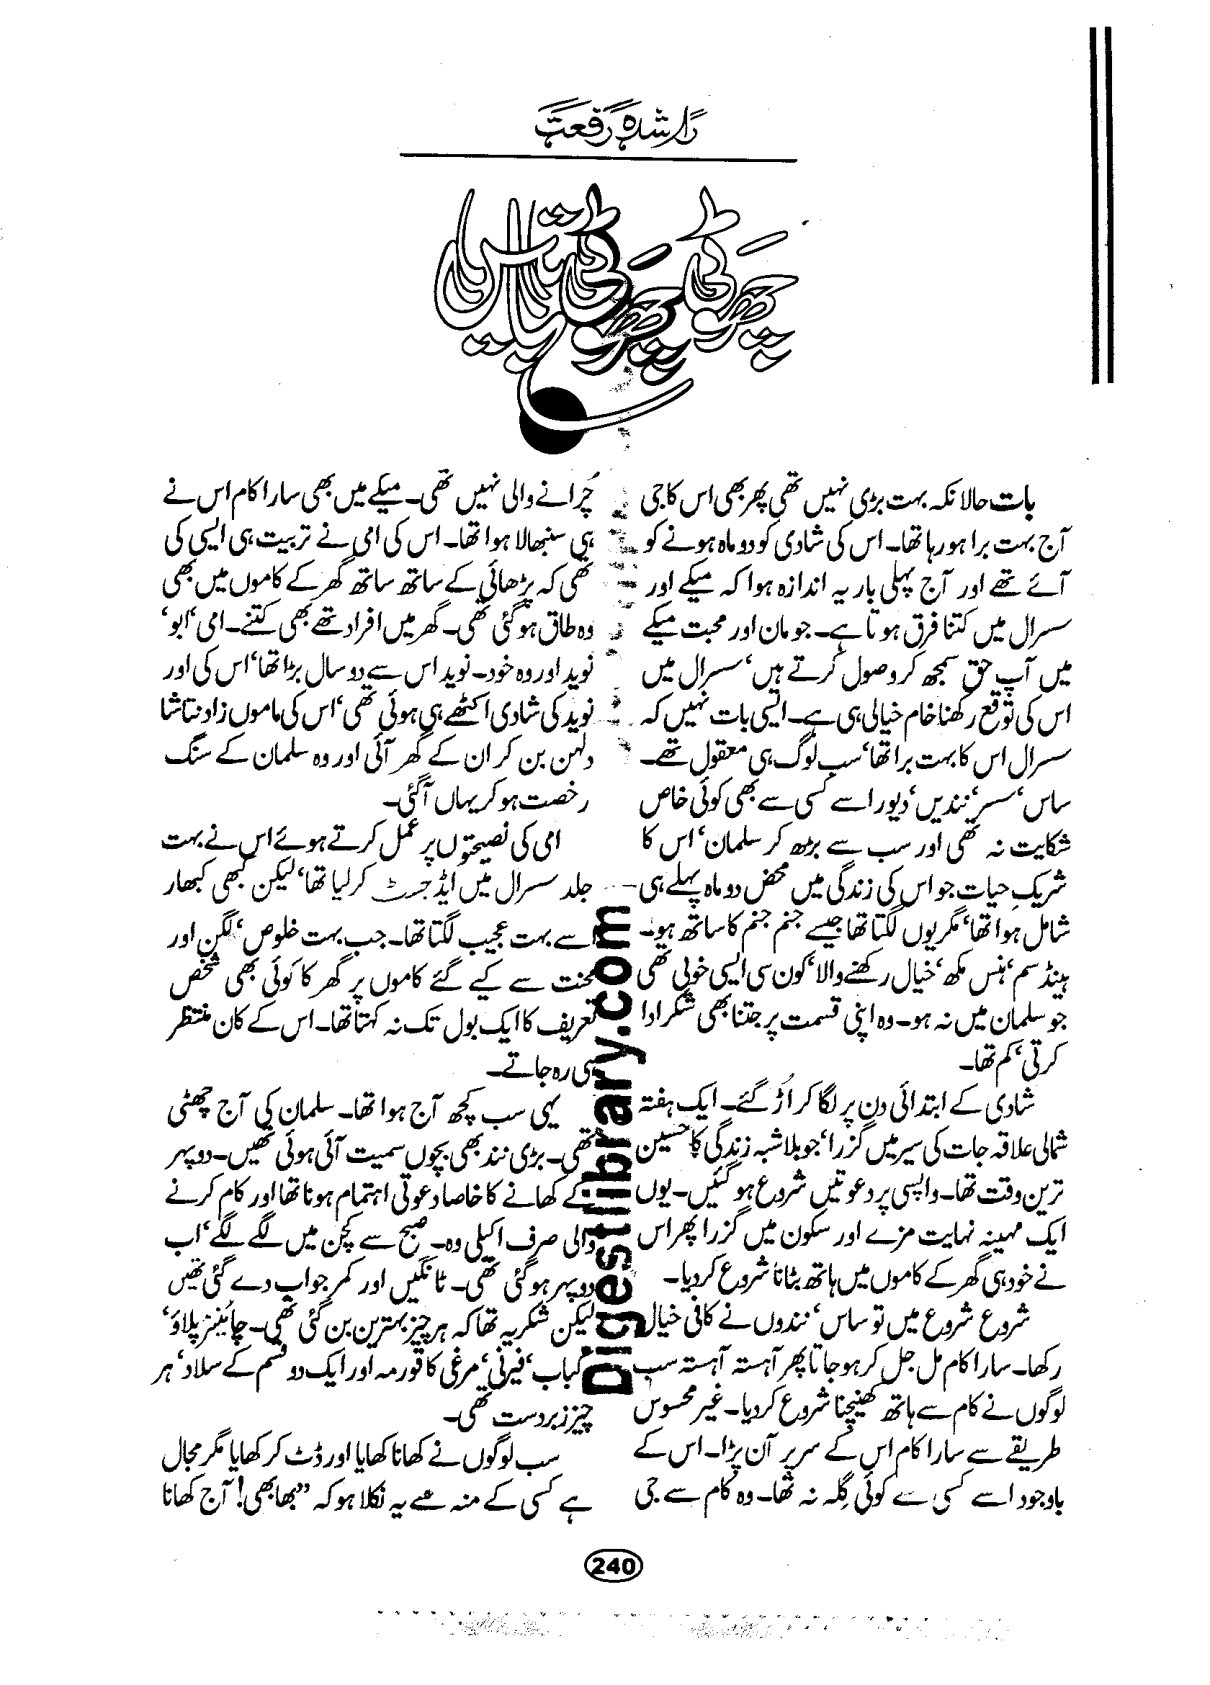 راشدہ رفعت
چھوٹی چھوٹی باتیں
بات حالانکہ بہت بڑی نہیں تھی پھر بھی اس کا جی
آج بہت برا ہو رہا تھا۔ اس کی شادی کو دو ماہ ہونے کو
آئے تھے اور آج پہلی بار یہ اندازہ ہوا کہ میکے اور
سسرال میں کتنا فرق ہوتا ہے۔ جو مان اور محبت میکے
میں آپ حق سمجھ کر وصول کرتے ہیں، سسرال میں
اس کی توقع رکھنا خام خیالی ہی ہے۔ ایسی بات نہیں کہ
سسرال اس کا بہت برا تھا، سب لوگ ہی معقول تھے۔
ساس، سسر، نندیں، دیور اسے کسی سے بھی کوئی خاص
شکایت نہ تھی اور سب سے بڑھ کر سلمان، اس کا
شریکِ حیات جو اس کی زندگی میں محض دو ماہ پہلے ہی
شامل ہوا تھا، مگر یوں لگتا تھا جیسے جنم جنم کا ساتھ ہو۔
ہینڈسم، ہنس مکھ، خیال رکھنے والا، کون سی ایسی خوبی تھی
جو سلمان میں نہ ہو۔ وہ اپنی قسمت پر جتنا بھی شکر ادا
کرتی، کم تھا۔
شادی کے ابتدائی دن پر لگا کر اُڑ گئے۔ ایک ہفتہ
شمالی علاقہ جات کی سیر میں گزرا، جو بلاشبہ زندگی کا حسین
ترین وقت تھا۔ واپسی پر دعوتیں شروع ہو گئیں۔ یوں
ایک مہینہ نہایت مزے اور سکون میں گزرا پھر اس
نے خود ہی گھر کے کاموں میں ہاتھ بٹانا شروع کردیا۔
شروع شروع میں تو ساس، نندوں نے کافی خیال
رکھا۔ سارا کام مل جل کر ہو جاتا پھر آہستہ آہستہ سب
لوگوں نے کام سے ہاتھ کھینچنا شروع کردیا۔ غیر محسوس
طریقے سے سارا کام اس کے سر پر آن پڑا۔ اس کے
باوجود اسے کسی سے کوئی گِلہ نہ تھا۔ وہ کام سے جی
چُرانے والی نہیں تھی۔ میکے میں بھی سارا کام اس نے
ہی سنبھالا ہوا تھا۔ اس کی امی نے تربیت ہی ایسی کی
تھی کہ پڑھائی کے ساتھ ساتھ گھر کے کاموں میں بھی
وہ طاق ہو گئی تھی۔ گھر میں افراد تھے بھی کتنے۔ امی، ابو،
نوید اور وہ خود۔ نوید اس سے دو سال بڑا تھا، اس کی اور
نوید کی شادی اکٹھے ہی ہوئی تھی، اس کی ماموں زاد نتاشا
دلہن بن کر ان کے گھر آئی اور وہ سلمان کے سنگ
رخصت ہو کر یہاں آگئی۔
امی کی نصیحتوں پر عمل کرتے ہوئے اس نے بہت
جلد سسرال میں ایڈجسٹ کرلیا تھا، لیکن کبھی کبھار
اسے بہت عجیب لگتا تھا۔ جب بہت خلوص، لگن اور
محنت سے کیے گئے کاموں پر گھر کا کوئی بھی شخص
تعریف کا ایک بول تک نہ کہتا تھا۔ اس کے کان منتظر
ہی رہ جاتے۔
یہی سب کچھ آج ہوا تھا۔ سلمان کی آج چھٹی
تھی۔ بڑی نند بھی بچوں سمیت آئی ہوئی تھیں۔ دوپہر
کے کھانے کا خاصا دعوتی اہتمام ہونا تھا اور کام کرنے
والی صرف اکیلی وہ۔ صبح سے کچن میں لگے لگے، اب
دوپہر ہو گئی تھی۔ ٹانگیں اور کمر جواب دے گئی تھیں
لیکن شکر یہ تھا کہ ہر چیز بہترین بن گئی تھی۔ چائنیز پلاؤ،
کباب، فیرنی، مرغی کا قورمہ اور ایک دو قسم کے سلاد، ہر
چیز زبردست تھی۔
سب لوگوں نے کھانا کھایا اور ڈٹ کر کھایا مگر مجال
ہے کسی کے منہ سے یہ نکلا ہو کہ "بھابھی! آج کھانا
Digestlibrary.com
240